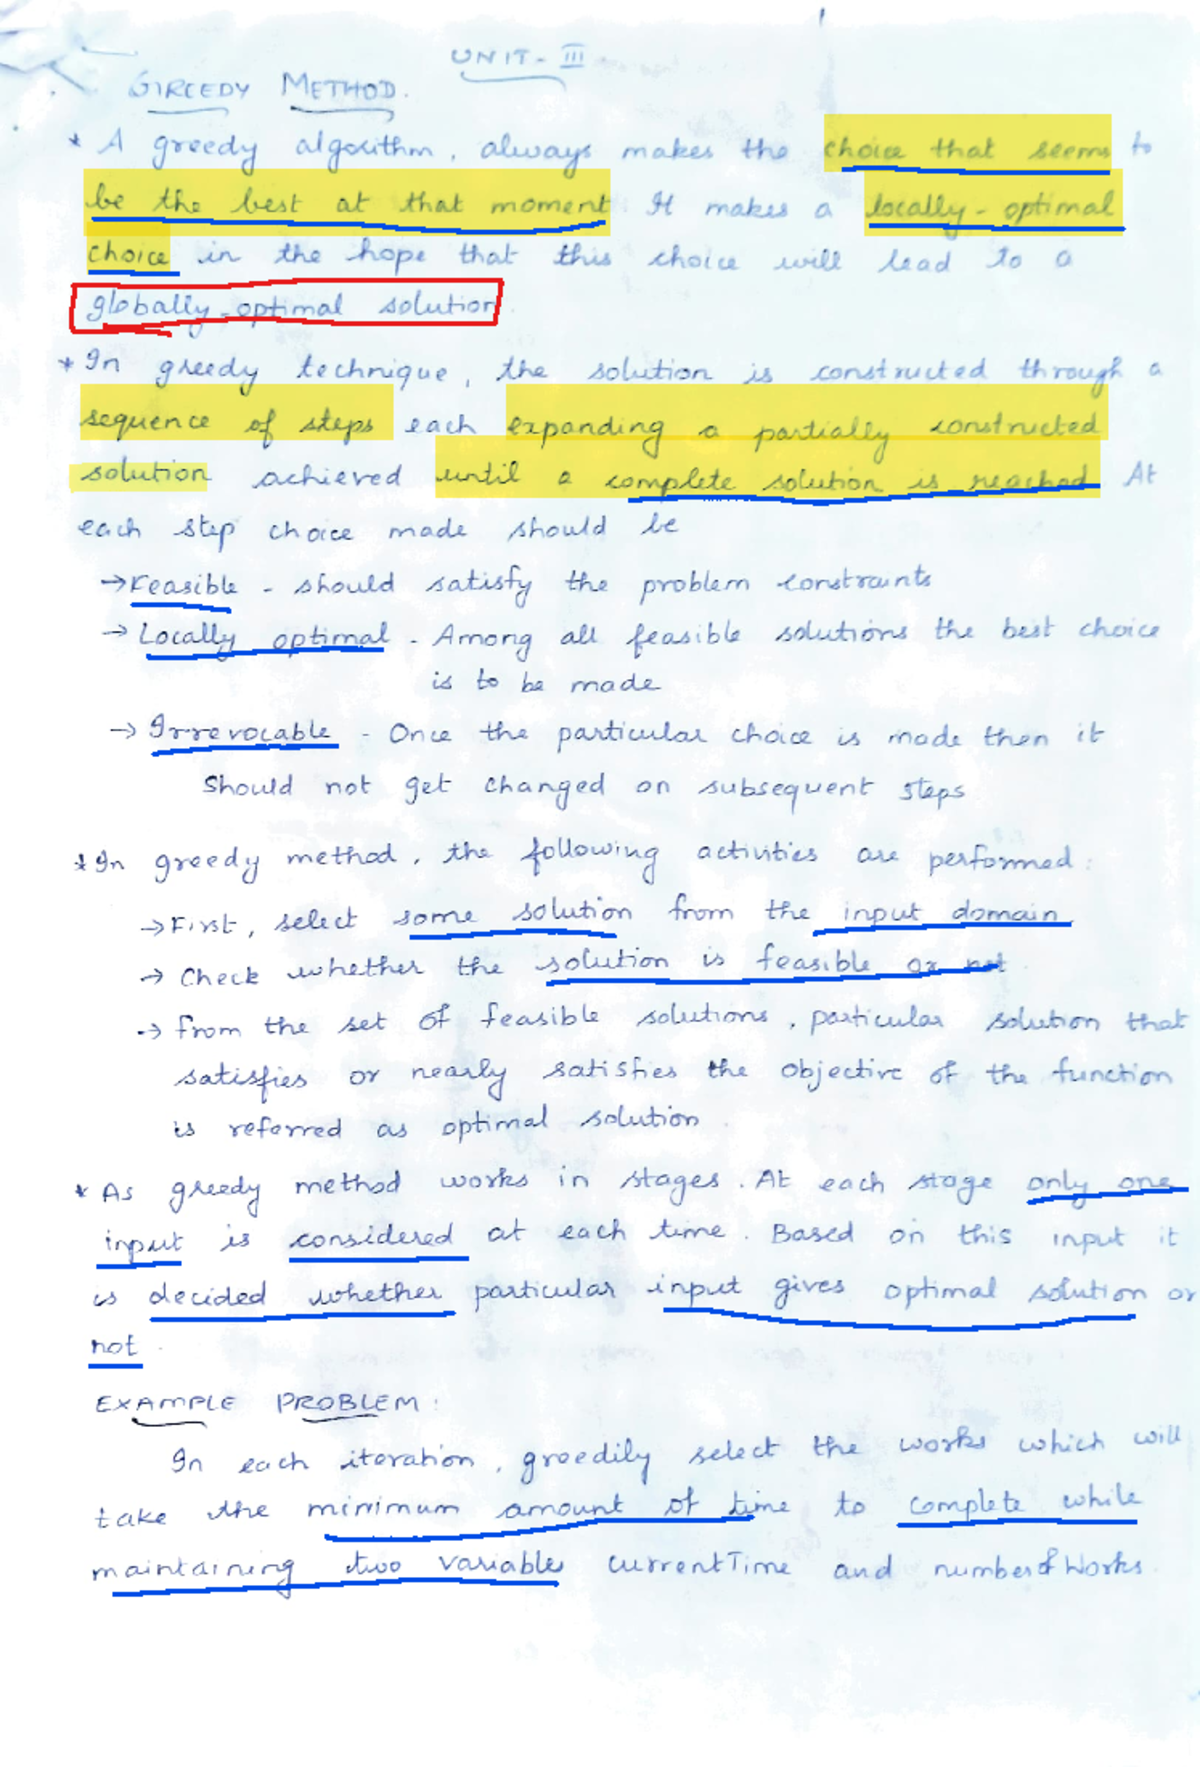 UNIT - III
GREEDY METHOD.
* A greedy algorithm, always makes the choice that seems to
be the best at that moment. It makes a locally-optimal
choice in the hope that this choice will lead to a
globally-optimal solution.
* In greedy technique, the solution is constructed through a
sequence of steps each expanding a partially constructed
solution achieved until a complete solution is reached At
each step choice made should be
→ Feasible - should satisfy the problem constraints
→ Locally optimal - Among all feasible solutions the best choice
is to be made
→ Irrevocable - Once the particular choice is made then it
Should not get changed on subsequent steps
* In greedy method, the following activities are performed:
→ First, select some solution from the input domain
→ Check whether the solution is feasible or not
→ from the set of feasible solutions, particular solution that
satisfies or nearly satisfies the objective of the function
is referred as optimal solution
* As greedy method works in stages. At each stage only one
input is considered at each time. Based on this input it
is decided whether particular input gives optimal solution or
not.
EXAMPLE PROBLEM:
In each iteration, greedily select the works which will
take the minimum amount of time to complete while
maintaining two variables currentTime and numberofWorks.